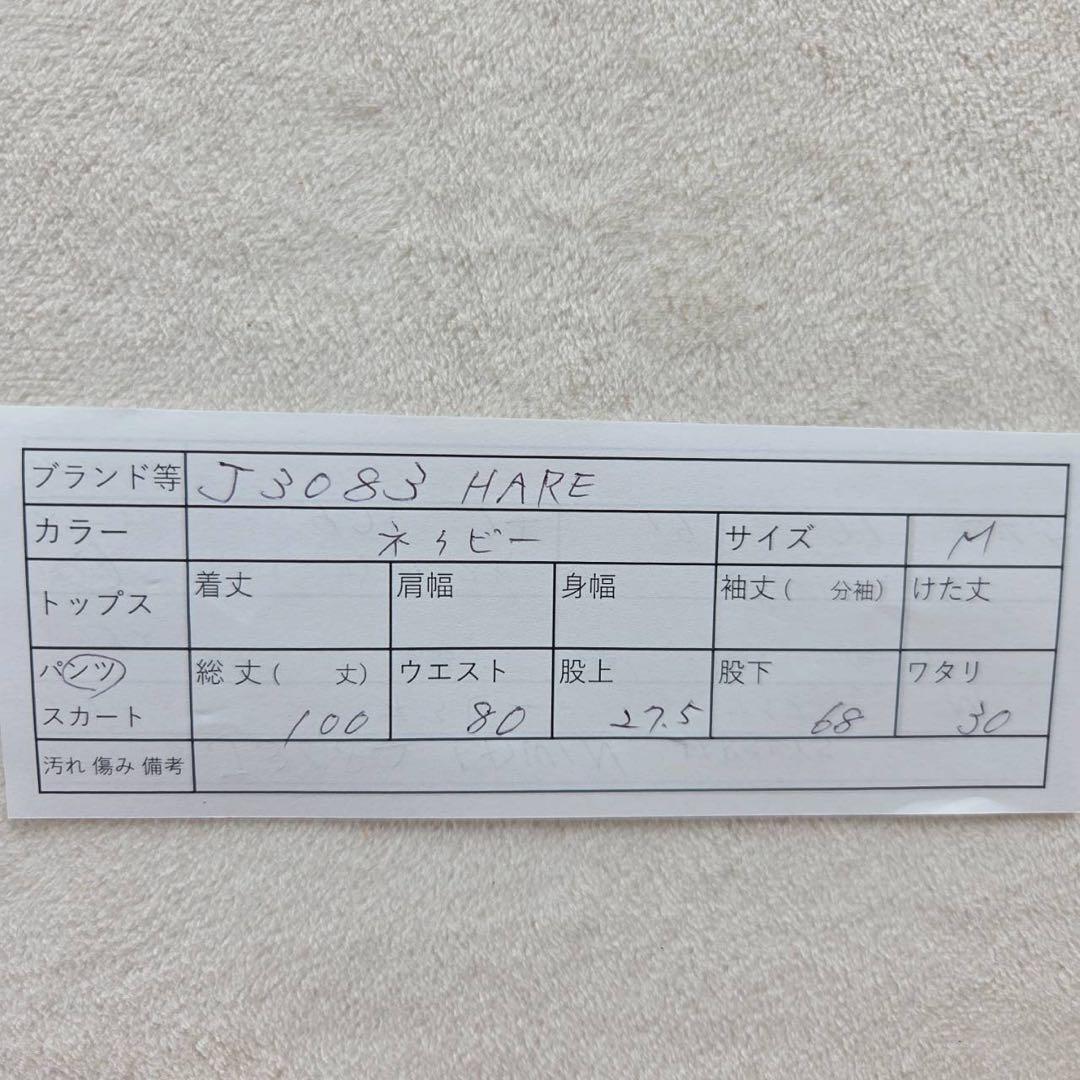 ブランド等 J3083 HARE
カラー ネイビー サイズ M
トップス 着丈 肩幅 身幅 袖丈( 分袖) けた丈
パンツ 総丈( 丈) ウエスト 股上 股下 ワタリ
スカート 100 80 27.5 68 30
汚れ 傷み 備考